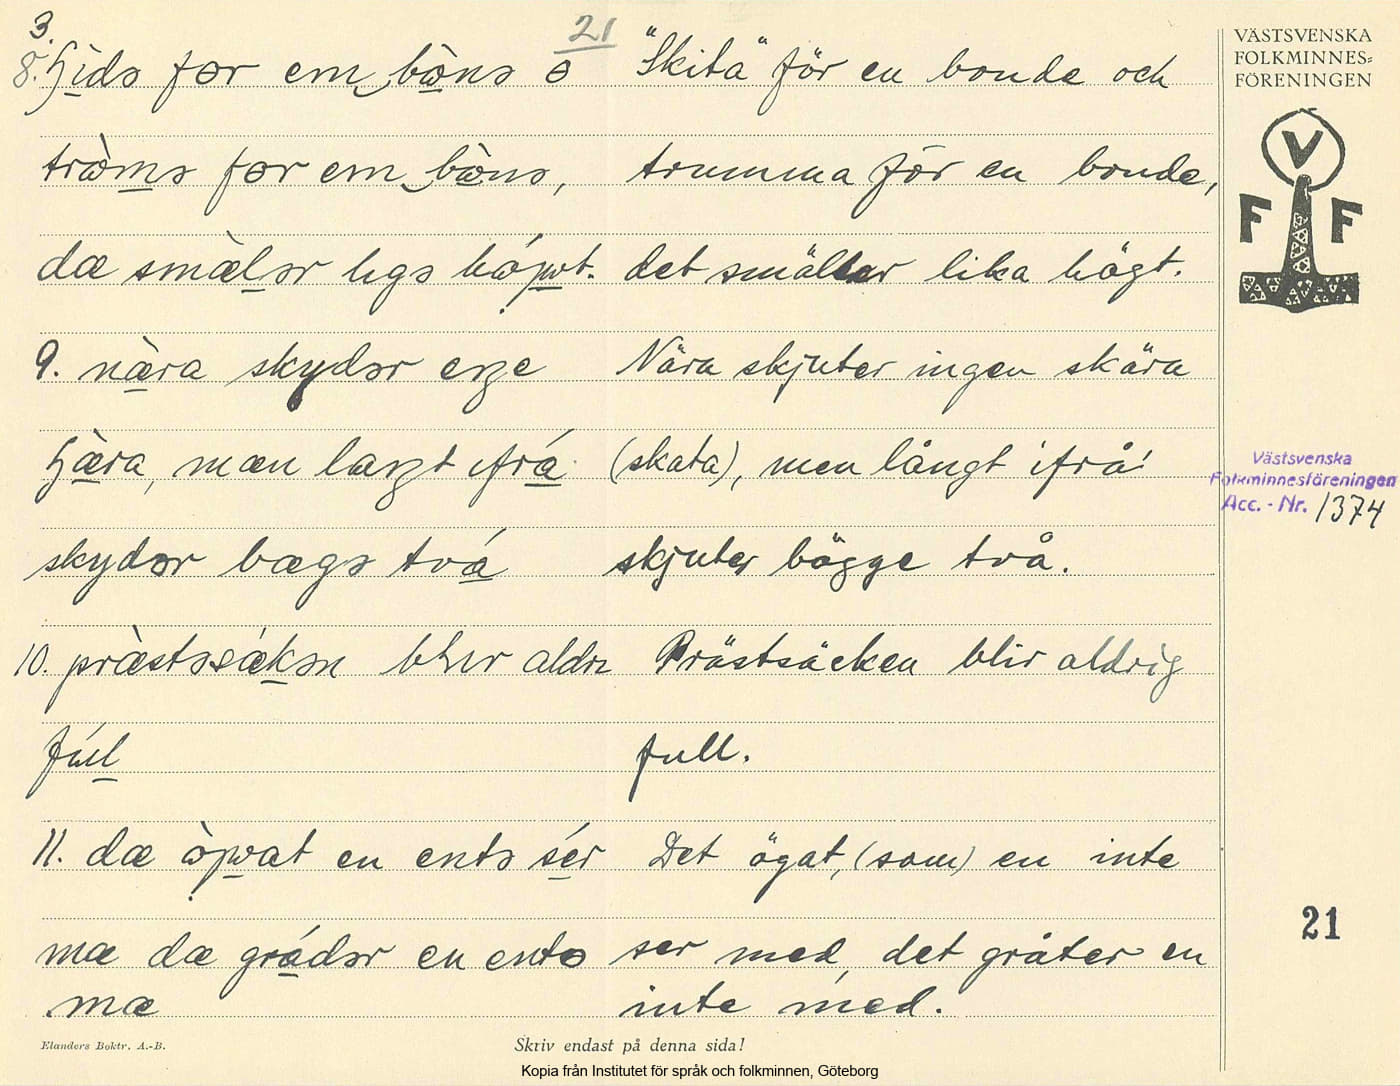 3.
21
VÄSTSVENSKA
FOLKMINNES=
FÖRENINGEN
8. for em bòns ə "Skita" för en bonde och
tròms for em bòns, trumma för en bonde,
dæ smælər det smäller lika högt.
V
F F
9. næra skydər eŋe Nära skjuter ingen skära
man laŋt ifrá (skata), men långt ifrå
skydər bægə tvá skjuter bögge två.
Västsvenska
Folkminnesföreningen
Acc. - Nr. 1374
10. præstəsækən blir aldri Prästsäcken blir aldrig
fúl full.
11. dæ en entə sér Det ögat, (som) en inte
mæ dæ grádər en entə ser med, det gråter en
mæ inte med.
21
Elanders Boktr. A.-B.
Skriv endast på denna sida!
Kopia från Institutet för språk och folkminnen, Göteborg